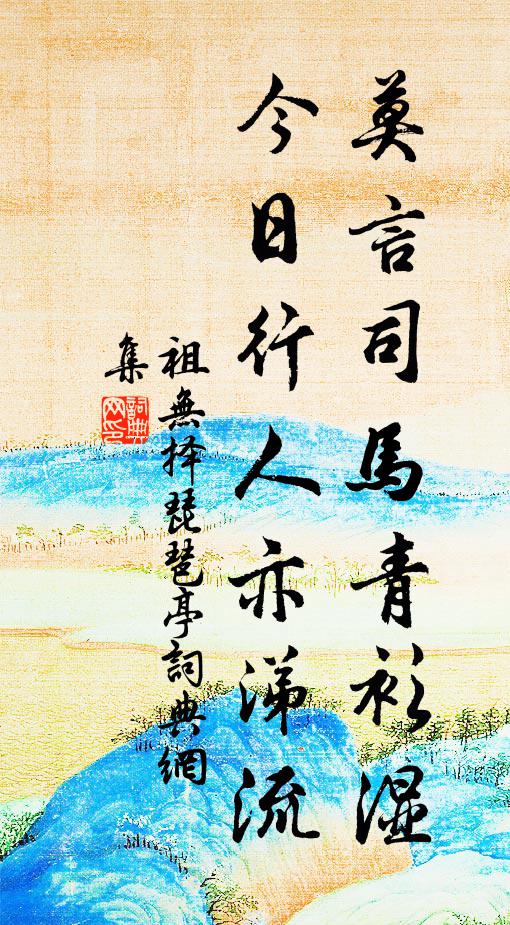 莫言司馬青衫湿
今日行人亦涕流
祖無择琵琶亭詞典網
集
詞典
网印